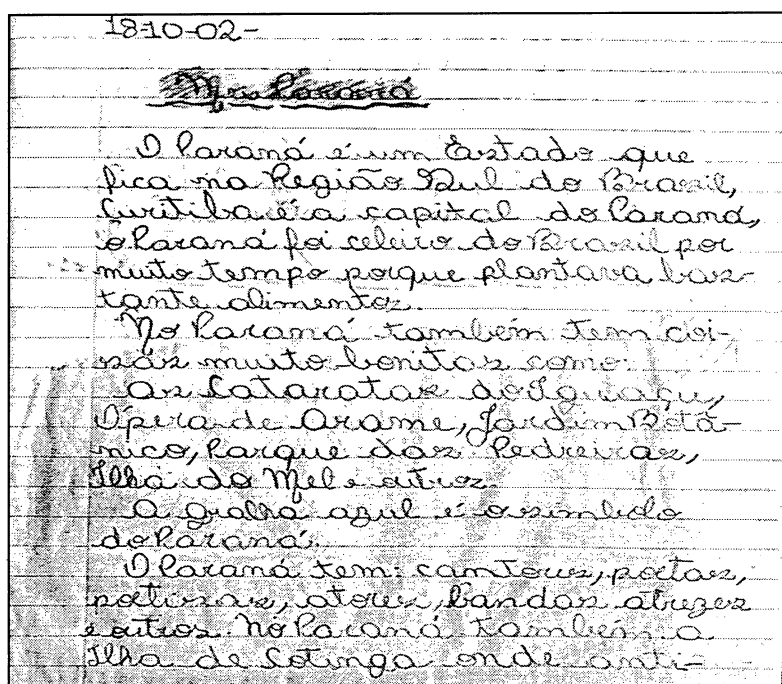 18-10-02-
Meu Paraná
O Paraná é um Estado que
fica na Região Sul do Brasil,
Curitiba é a capital do Paraná,
o Paraná foi celeiro do Brasil por
muito tempo porque plantava bas-
tante alimentos.
No Paraná também tem coi-
sas muito bonitas como:
as Cataratas do Iguaçu,
Ópera de Arame, Jardim Botâ-
nico, Parque das Pedreiras,
Ilha do Mel e outros.
A gralha azul é o simbolo
do Paraná.
O Paraná tem: camtores, poetas,
poetisas, atores, bandas atrizes
e outros. No Paraná também a
Ilha de Cotinga onde anti-